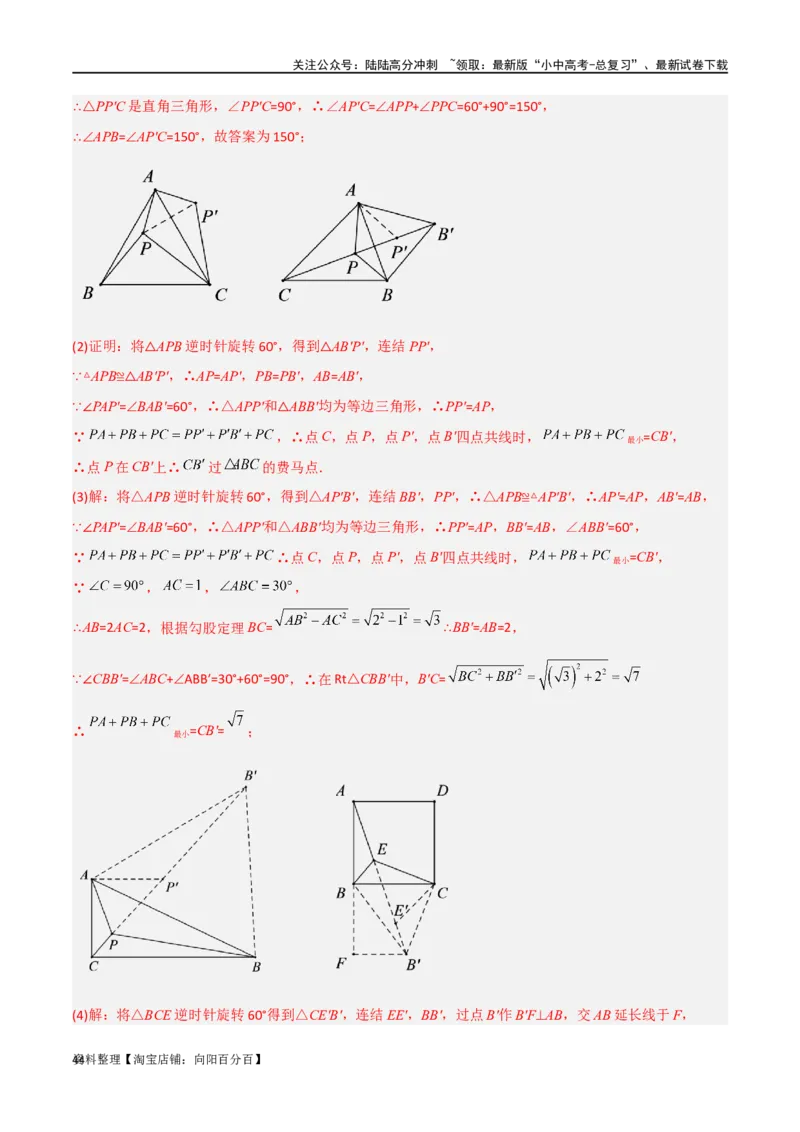 关注公众号：陆陆高分冲刺　~领取：最新版“小中高考-总复习”、最新试卷下载
∴△PP′C是直角三角形，∠PP′C=90°，∴∠AP′C=∠APP+∠PPC=60°+90°=150°，
∴∠APB=∠AP′C=150°，故答案为150°；
A
P′
P
B
C
A
B′
P′
P
C
B
(2)证明：将△APB逆时针旋转60°，得到△AB′P′，连结PP′，
∵△APB≌△AB′P′，∴AP=AP′，PB=PB′，AB=AB′，
∵∠PAP′=∠BAB′=60°，∴△APP′和△ABB′均为等边三角形，∴PP′=AP，
∵PA+PB+PC=PP′+P′B′+PC，∴点C，点P，点P′，点B′四点共线时，PA+PB+PC最小=CB′，
∴点P在CB′上∴CB′过△ABC的费马点．
(3)解：将△APB逆时针旋转60°，得到△AP′B′，连结BB′，PP′，∴△APB≌△AP′B′，∴AP′=AP，AB′=AB，
∵∠PAP′=∠BAB′=60°，∴△APP′和△ABB′均为等边三角形，∴PP′=AP，BB′=AB，∠ABB′=60°，
∵PA+PB+PC=PP′+P′B′+PC∴点C，点P，点P′，点B′四点共线时，PA+PB+PC最小=CB′，
∵∠C=90°，AC=1，∠ABC=30°，
∴AB=2AC=2，根据勾股定理BC=√(AB²−AC²)=√(2²−1²)=√3∴BB′=AB=2，
∵∠CBB′=∠ABC+∠ABB′=30°+60°=90°，∴在Rt△CBB′中，B′C=√(BC²+BB′²)=√((√3)²+2²)=√7
∴PA+PB+PC最小=CB′=√7；
B′
A
P′
P
C
B
A
D
E
B
C
E′
F
B′
(4)解：将△BCE逆时针旋转60°得到△CE′B′，连结EE′，BB′，过点B′作B′F⊥AB，交AB延长线于F，
料整理【淘宝店铺：向阳百分百】